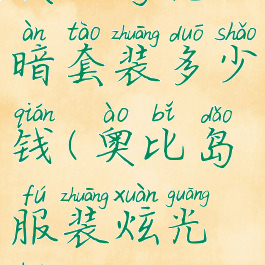 àn tào zhuāng duō shǎo
暗套装多少
qián ào bǐ dǎo
钱(奥比岛
fú zhuāng xuàn guāng
服装炫光